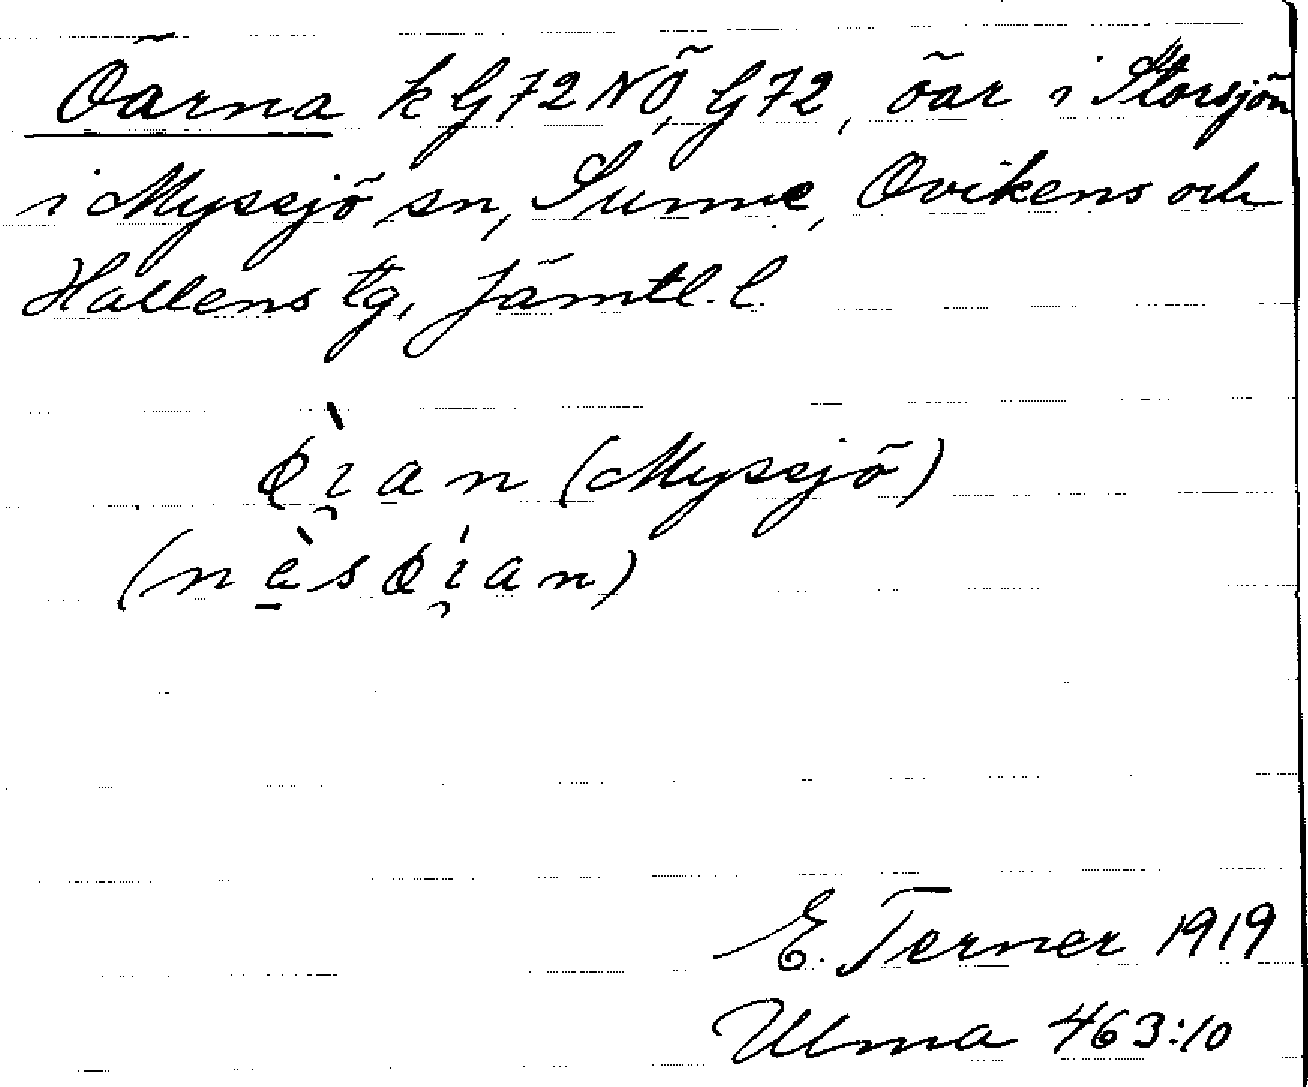 Öarna k G72NÖ, G72, öar i Storsjön
i Myssjö sn, Sunne, Ovikens och
Hallens tg, Jämtl. l.
(Myssjö)
E. Terner 1919
Ulma 463:10